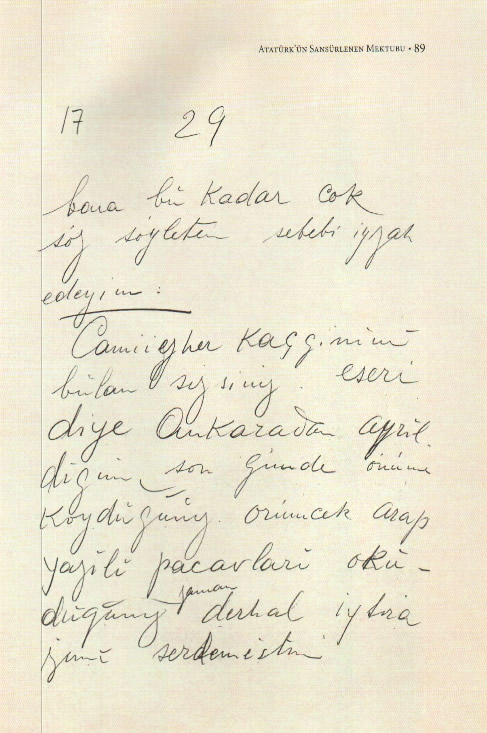 ATATÜRK'ÜN SANSÜRLENEN MEKTUBU • 89
17 29
bana bu kadar çok
söz söyleten sebebi iyzah
edeyim :
Camiiezher kaçgınını
bulan sizsiniz. eseri
diye Ankaradan ayrıl
dığım son günde önüme
koyduğunuz. örümcek arap
yazılı paçavları oku-
duğunuz zaman derhal iytira
zımı serdemiştim